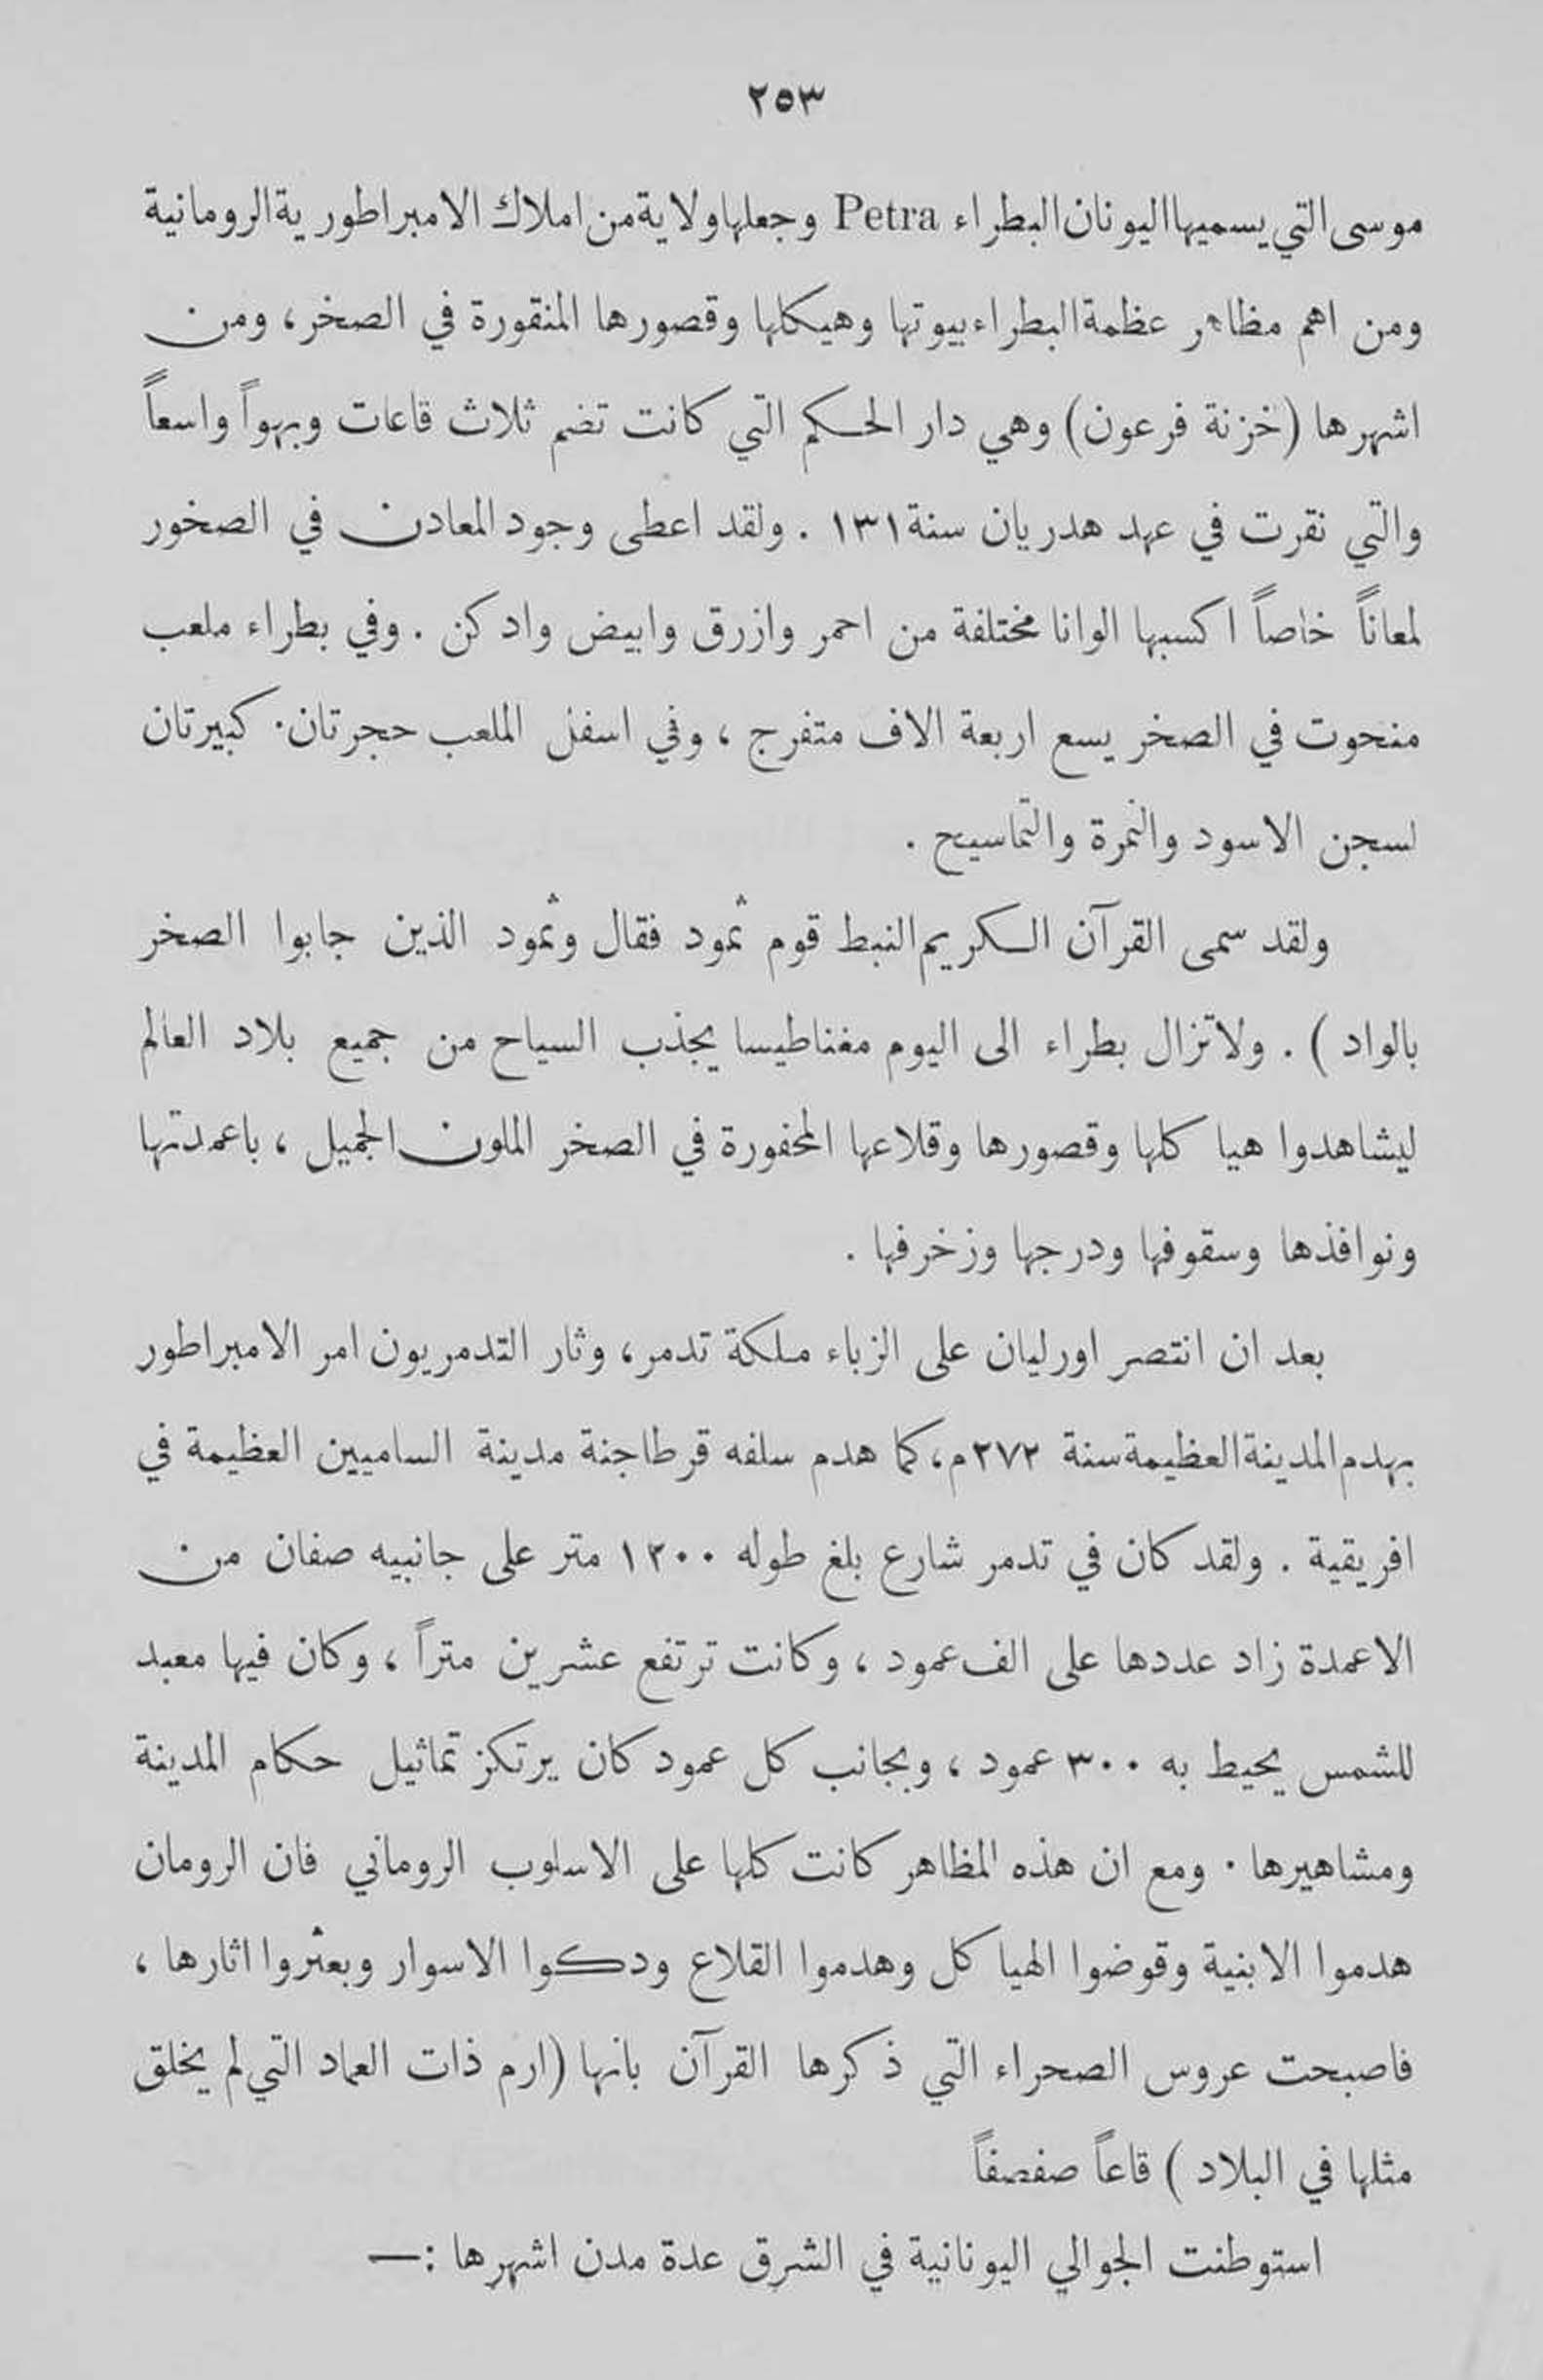 ٢٥٣
موسى التي يسميها اليونان البطراء Petra وجعلها ولاية من املاك الامبراطورية الرومانية
ومن اهم مظاهر عظمة البطراء بيوتها وهيكلها وقصورها المنقورة في الصخر، ومن
اشهرها (خزنة فرعون) وهي دار الحكم التي كانت تضم ثلاث قاعات وبهواً واسعاً
والتي نقرت في عهد هدريان سنة ١٣١ . ولقد اعطى وجود المعادن في الصخور
لمعاناً خاصاً اكسبها الوانا مختلفة من احمر وازرق وابيض وادكن . وفي بطراء ملعب
منحوت في الصخر يسع اربعة الاف متفرج ، وفي اسفل الملعب حجرتان كبيرتان
لسجن الاسود والنمرة والتماسيح .
ولقد سمى القرآن الكريم النبط قوم ثمود فقال وثمود الذين جابوا الصخر
بالواد ) . ولاتزال بطراء الى اليوم مغناطيسا يجذب السياح من جميع بلاد العالم
ليشاهدوا هياكلها وقصورها وقلاعها المحفورة في الصخر الملون الجميل ، باعمدتها
ونوافذها وسقوفها ودرجها وزخرفها .
بعد ان انتصر اورليان على الزباء ملكة تدمر، وثار التدمريون امر الامبراطور
بهدم المدينة العظيمة سنة ٢٧٢م، كما هدم سلفه قرطاجنة مدينة الساميين العظيمة في
افريقية . ولقد كان في تدمر شارع بلغ طوله ١٢٠٠ متر على جانبيه صفان من
الاعمدة زاد عددها على الف عمود ، وكانت ترتفع عشرين متراً ، وكان فيها معبد
للشمس يحيط به ٣٠٠ عمود ، وبجانب كل عمود كان يرتكز تماثيل حكام المدينة
ومشاهيرها . ومع ان هذه المظاهر كانت كلها على الاسلوب الروماني فان الرومان
هدموا الابنية وقوضوا الهياكل وهدموا القلاع ودكوا الاسوار وبعثروا اثارها ،
فاصبحت عروس الصحراء التي ذكرها القرآن بانها (ارم ذات العماد التي لم يخلق
مثلها في البلاد ) قاعاً صفصفاً
استوطنت الجوالي اليونانية في الشرق عدة مدن اشهرها :—